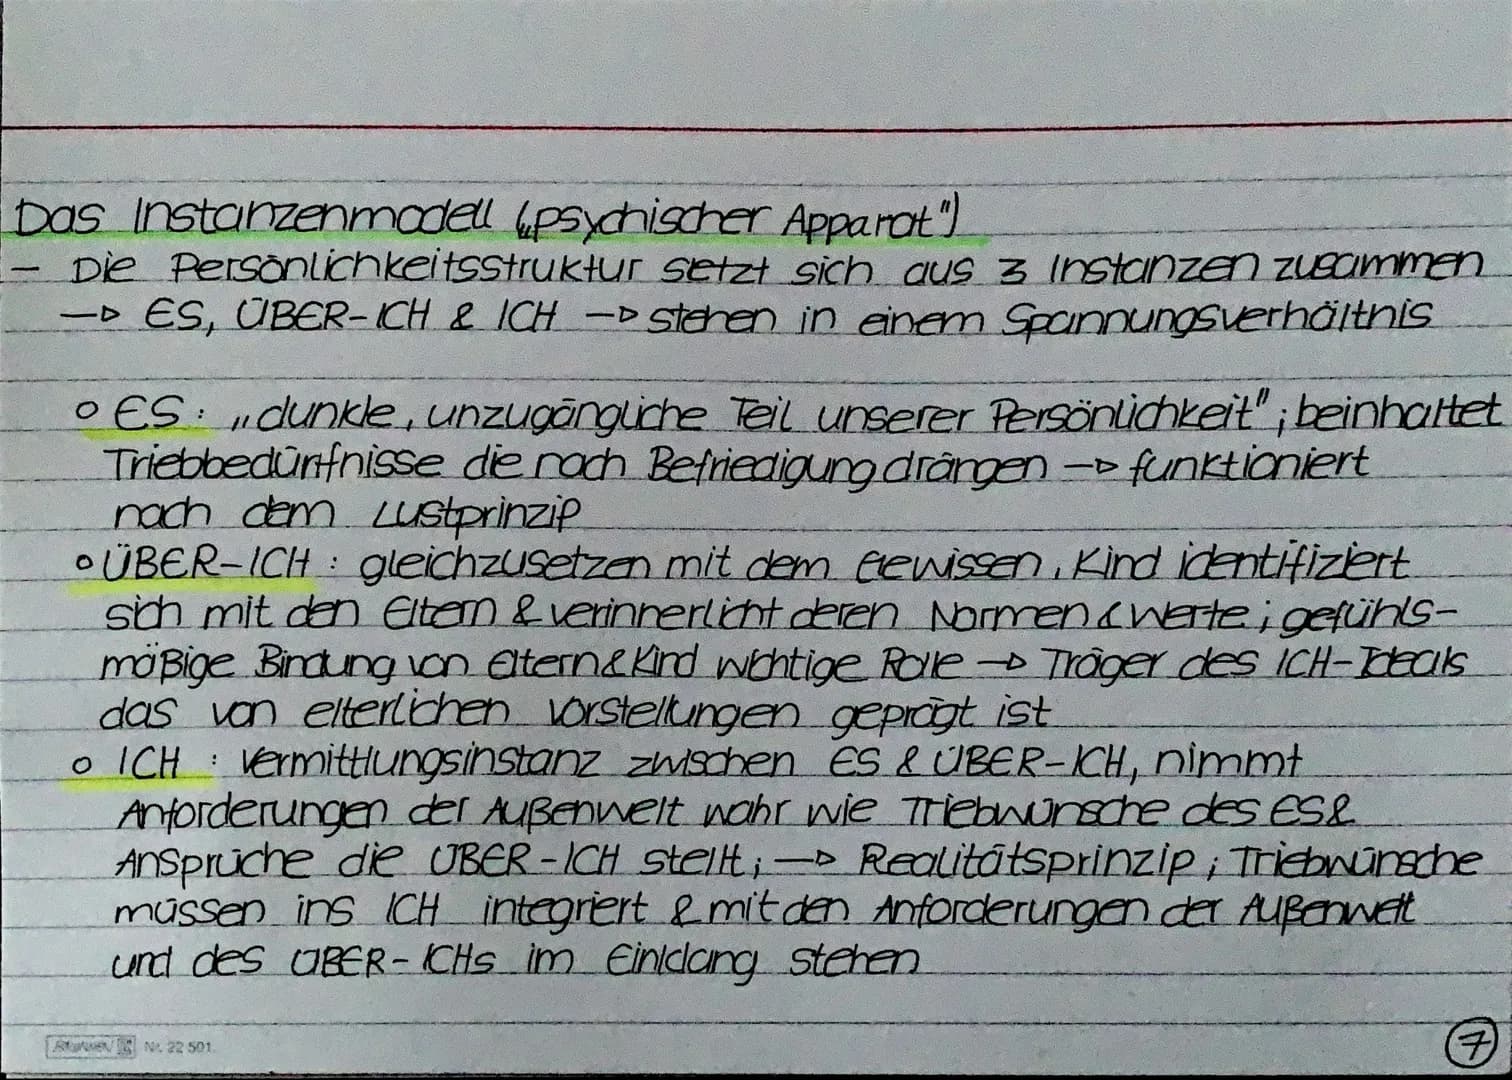 Das Instanzenmodell („psychischer Apparat")
- Die Persönlichkeitsstruktur setzt sich aus 3 Instanzen zusammen
→ ES, ÜBER-ICH & ICH → stehen in einem Spannungsverhältnis
○ ES: „dunkle, unzugängliche Teil unserer Persönlichkeit"; beinhaltet
Triebbedürfnisse die nach Befriedigung drängen → funktioniert
nach dem Lustprinzip
○ ÜBER-ICH: gleichzusetzen mit dem Gewissen, Kind identifiziert
sich mit den Eltern & verinnerlicht deren Normen & Werte; gefühls-
mäßige Bindung von Eltern & Kind wichtige Rolle → Träger des ICH-Ideals
das von elterlichen Vorstellungen geprägt ist
○ ICH: Vermittlungsinstanz zwischen ES & ÜBER-ICH, nimmt
Anforderungen der Außenwelt wahr wie Triebwünsche des ES &
Ansprüche die ÜBER-ICH stellt; → Realitätsprinzip; Triebwünsche
müssen ins ICH integriert & mit den Anforderungen der Außenwelt
und des ÜBER-ICHs im Einklang stehen
BRUNNEN Nr. 22 501
7